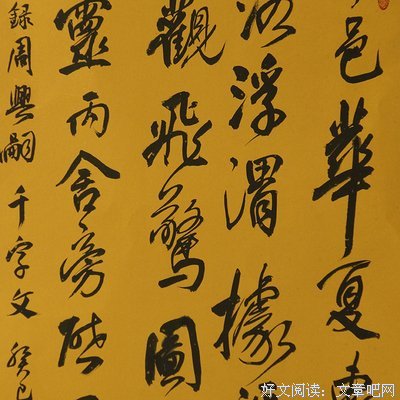 邑華夏
洛浮渭據
觀飛驚圖
靈丙舍傍啓
録周興嗣千字文 癸巳
好文阅读：文章吧网